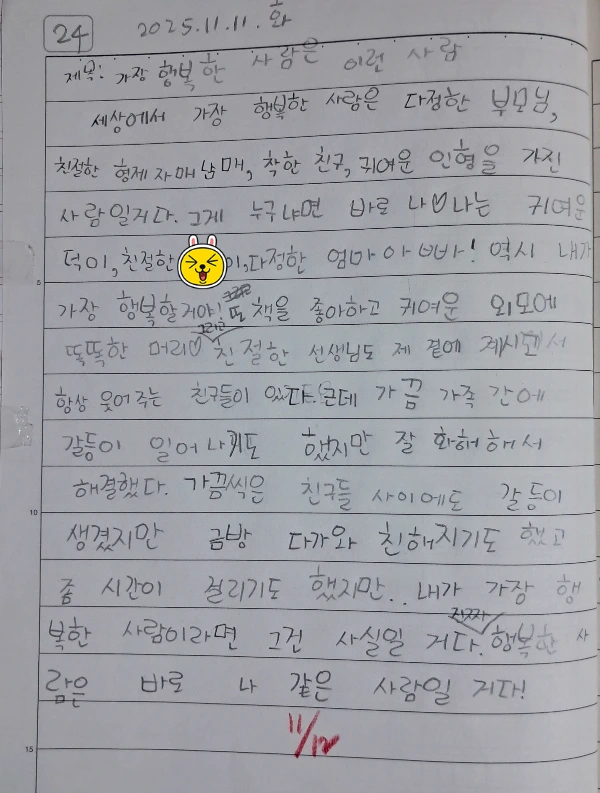 24
2025.11.11.화
제목: 가장 행복한 사람은 이런 사람
세상에서 가장 행복한 사람은 다정한 부모님,
친절한 형제 자매 남매, 착한 친구, 귀여운 인형을 가진
사람일거다. 그게 누구냐면 바로 나♡나는 귀여운
덕이, 친절한 이, 다정한 엄마 아빠! 역시 내가
가장 행복할거야! 또 책을 좋아하고 귀여운 외모에
똑똑한 머리♡ 그리고 친절한 선생님도 제 곁에 계시면서
항상 웃어주는 친구들이 있다. 근데 가끔 가족 간에
갈등이 일어나기도 했지만 잘 화해해서
해결했다. 가끔씩은 친구들 사이에도 갈등이
10
생겼지만 금방 다가와 친해지기도 했고
좀 시간이 걸리기도 했지만.. 내가 가장 행
복한 사람이라면 그건 사실일 거다. 진짜 행복한 사
람은 바로 나 같은 사람일 거다!
11/12
15